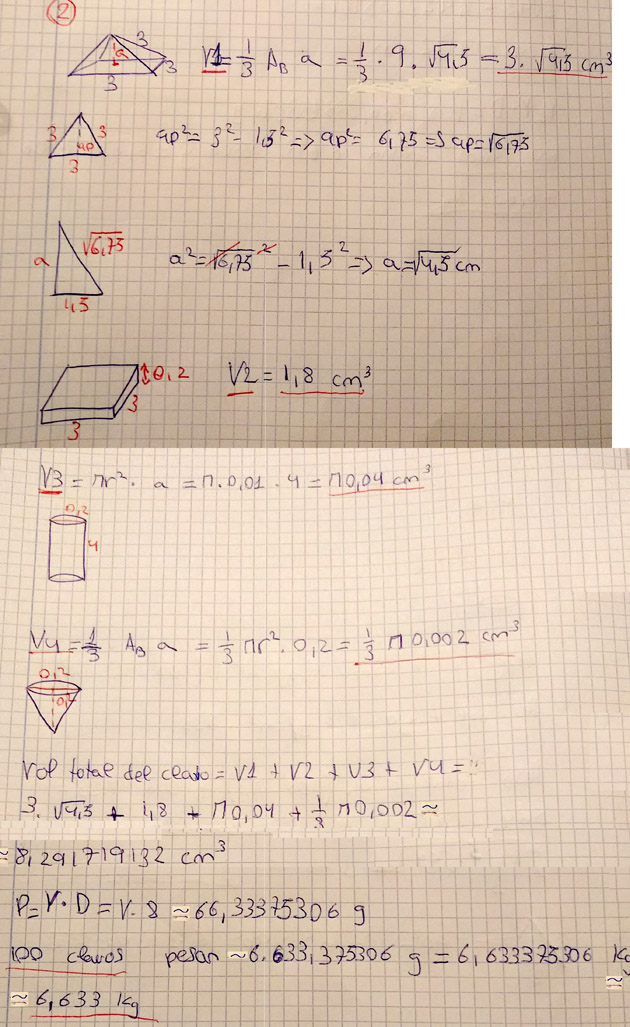 2
3
3
a
3
V1 = 1/3 A_B a = 1/3 · 9 · √4,5 = 3 · √4,5 cm³
3 3
ap
3
ap² = 3² - 1,5² => ap² = 6,75 => ap = √6,75
a √6,75
1,5
a² = √6,75² - 1,5² => a = √4,5 cm
0,2
3
3
V2 = 1,8 cm³
V3 = πr² · a = π · 0,01 · 4 = π0,04 cm³
0,2
4
V4 = 1/3 A_B a = 1/3 πr² · 0,2 = 1/3 π 0,002 cm³
0,2
0,2
Vol total del clavo = V1 + V2 + V3 + V4 =
3 · √4,5 + 1,8 + π0,04 + 1/3 π0,002 ≈
≈ 8,291719132 cm³
P = V · D = V · 8 ≈ 66,33375306 g
100 clavos pesan ~ 6.633,375306 g = 6,633375306 kg ≈
≈ 6,633 kg